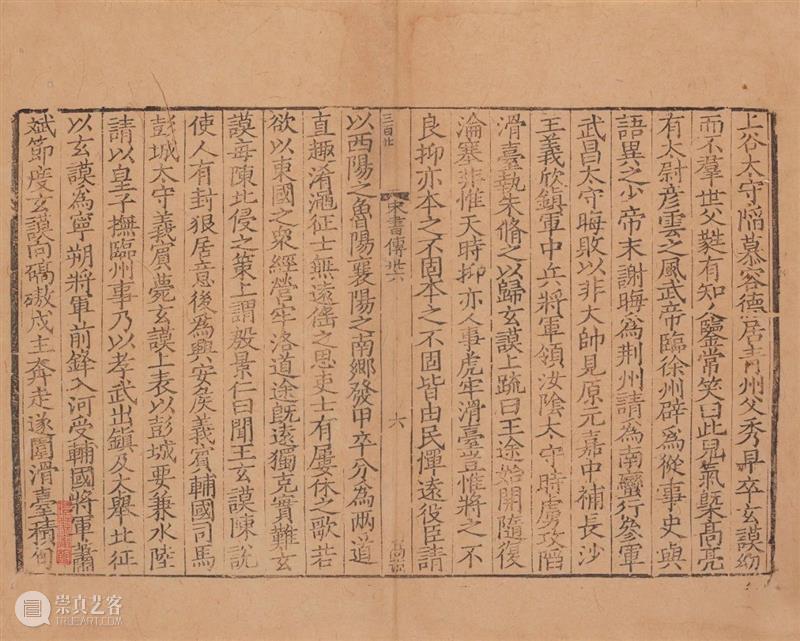 上谷太守陷慕容德居青州父秀早卒玄謨幼
而不羣世父蕤有知人鑒常笑曰此兒氣槩高亮
有太尉彦雲之風武帝臨徐州辟爲從事史與
語異之少帝末謝晦爲荆州請爲南蠻行參軍
武昌太守晦敗以非大帥見原元嘉中補長沙
王義欣鎮軍中兵將軍領汝陰太守時虜攻陷
滑臺執朱脩之以歸玄謨上疏曰王途始開隨復
淪塞非惟天時抑亦人事虎牢滑臺豈惟將之不
良抑亦本之不固本之不固皆由民憚遠役臣請
三百廿
宋書傳卅六
六
以西陽之魯陽襄陽之南鄉發甲卒分爲兩道
直趣淆澠征士無遠徭之思吏士有屢休之歌若
欲以東國之衆經營牢洛道途旣遠獨克實難玄
謨每陳北侵之策上謂殷景仁曰聞王玄謨陳說
使人有封狼居意後爲興安侯義賓輔國司馬
彭城太守義賓薨玄謨上表以彭城要兼水陸
請以皇子撫臨州事乃以孝武出鎮及大舉北征
以玄謨爲寧朔將軍前鋒入河受輔國將軍蕭
斌節度玄謨向碻磝戍主奔走遂圍滑臺積旬
崇真艺客